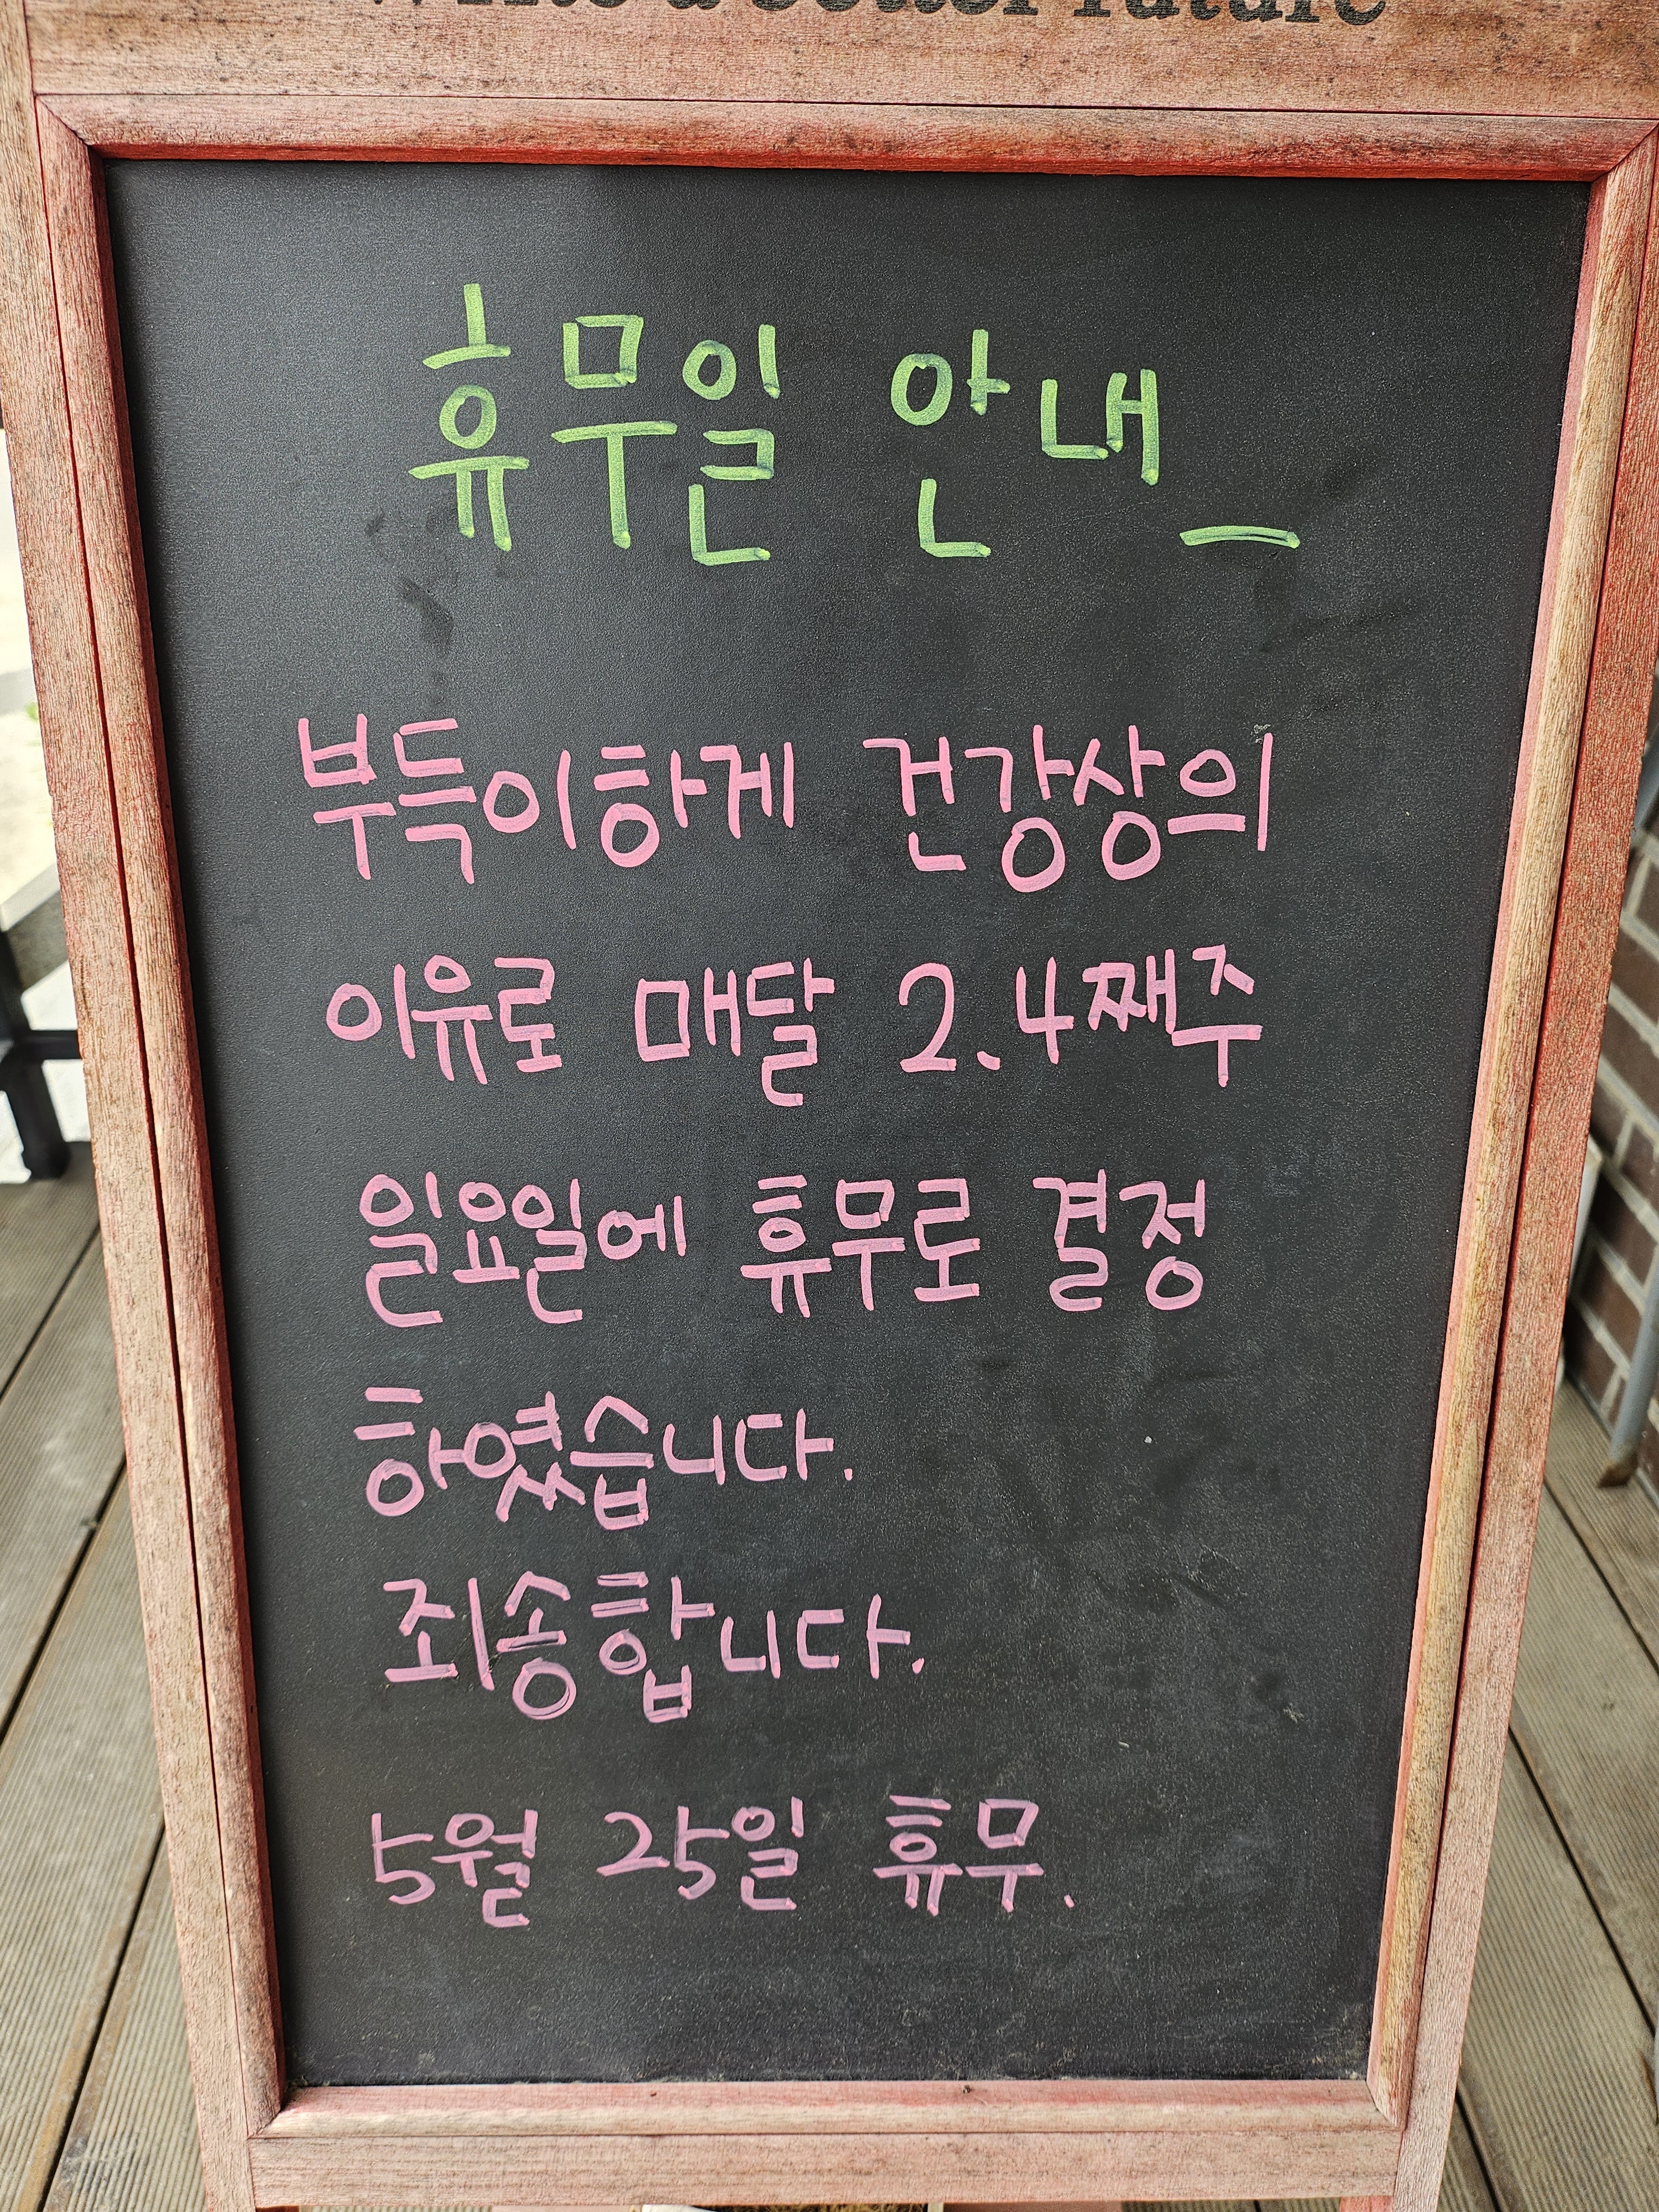 휴무일 안내_
부득이하게 건강상의
이유로 매달 2.4째주
일요일에 휴무로 결정
하였습니다.
죄송합니다.
5월 25일 휴무.